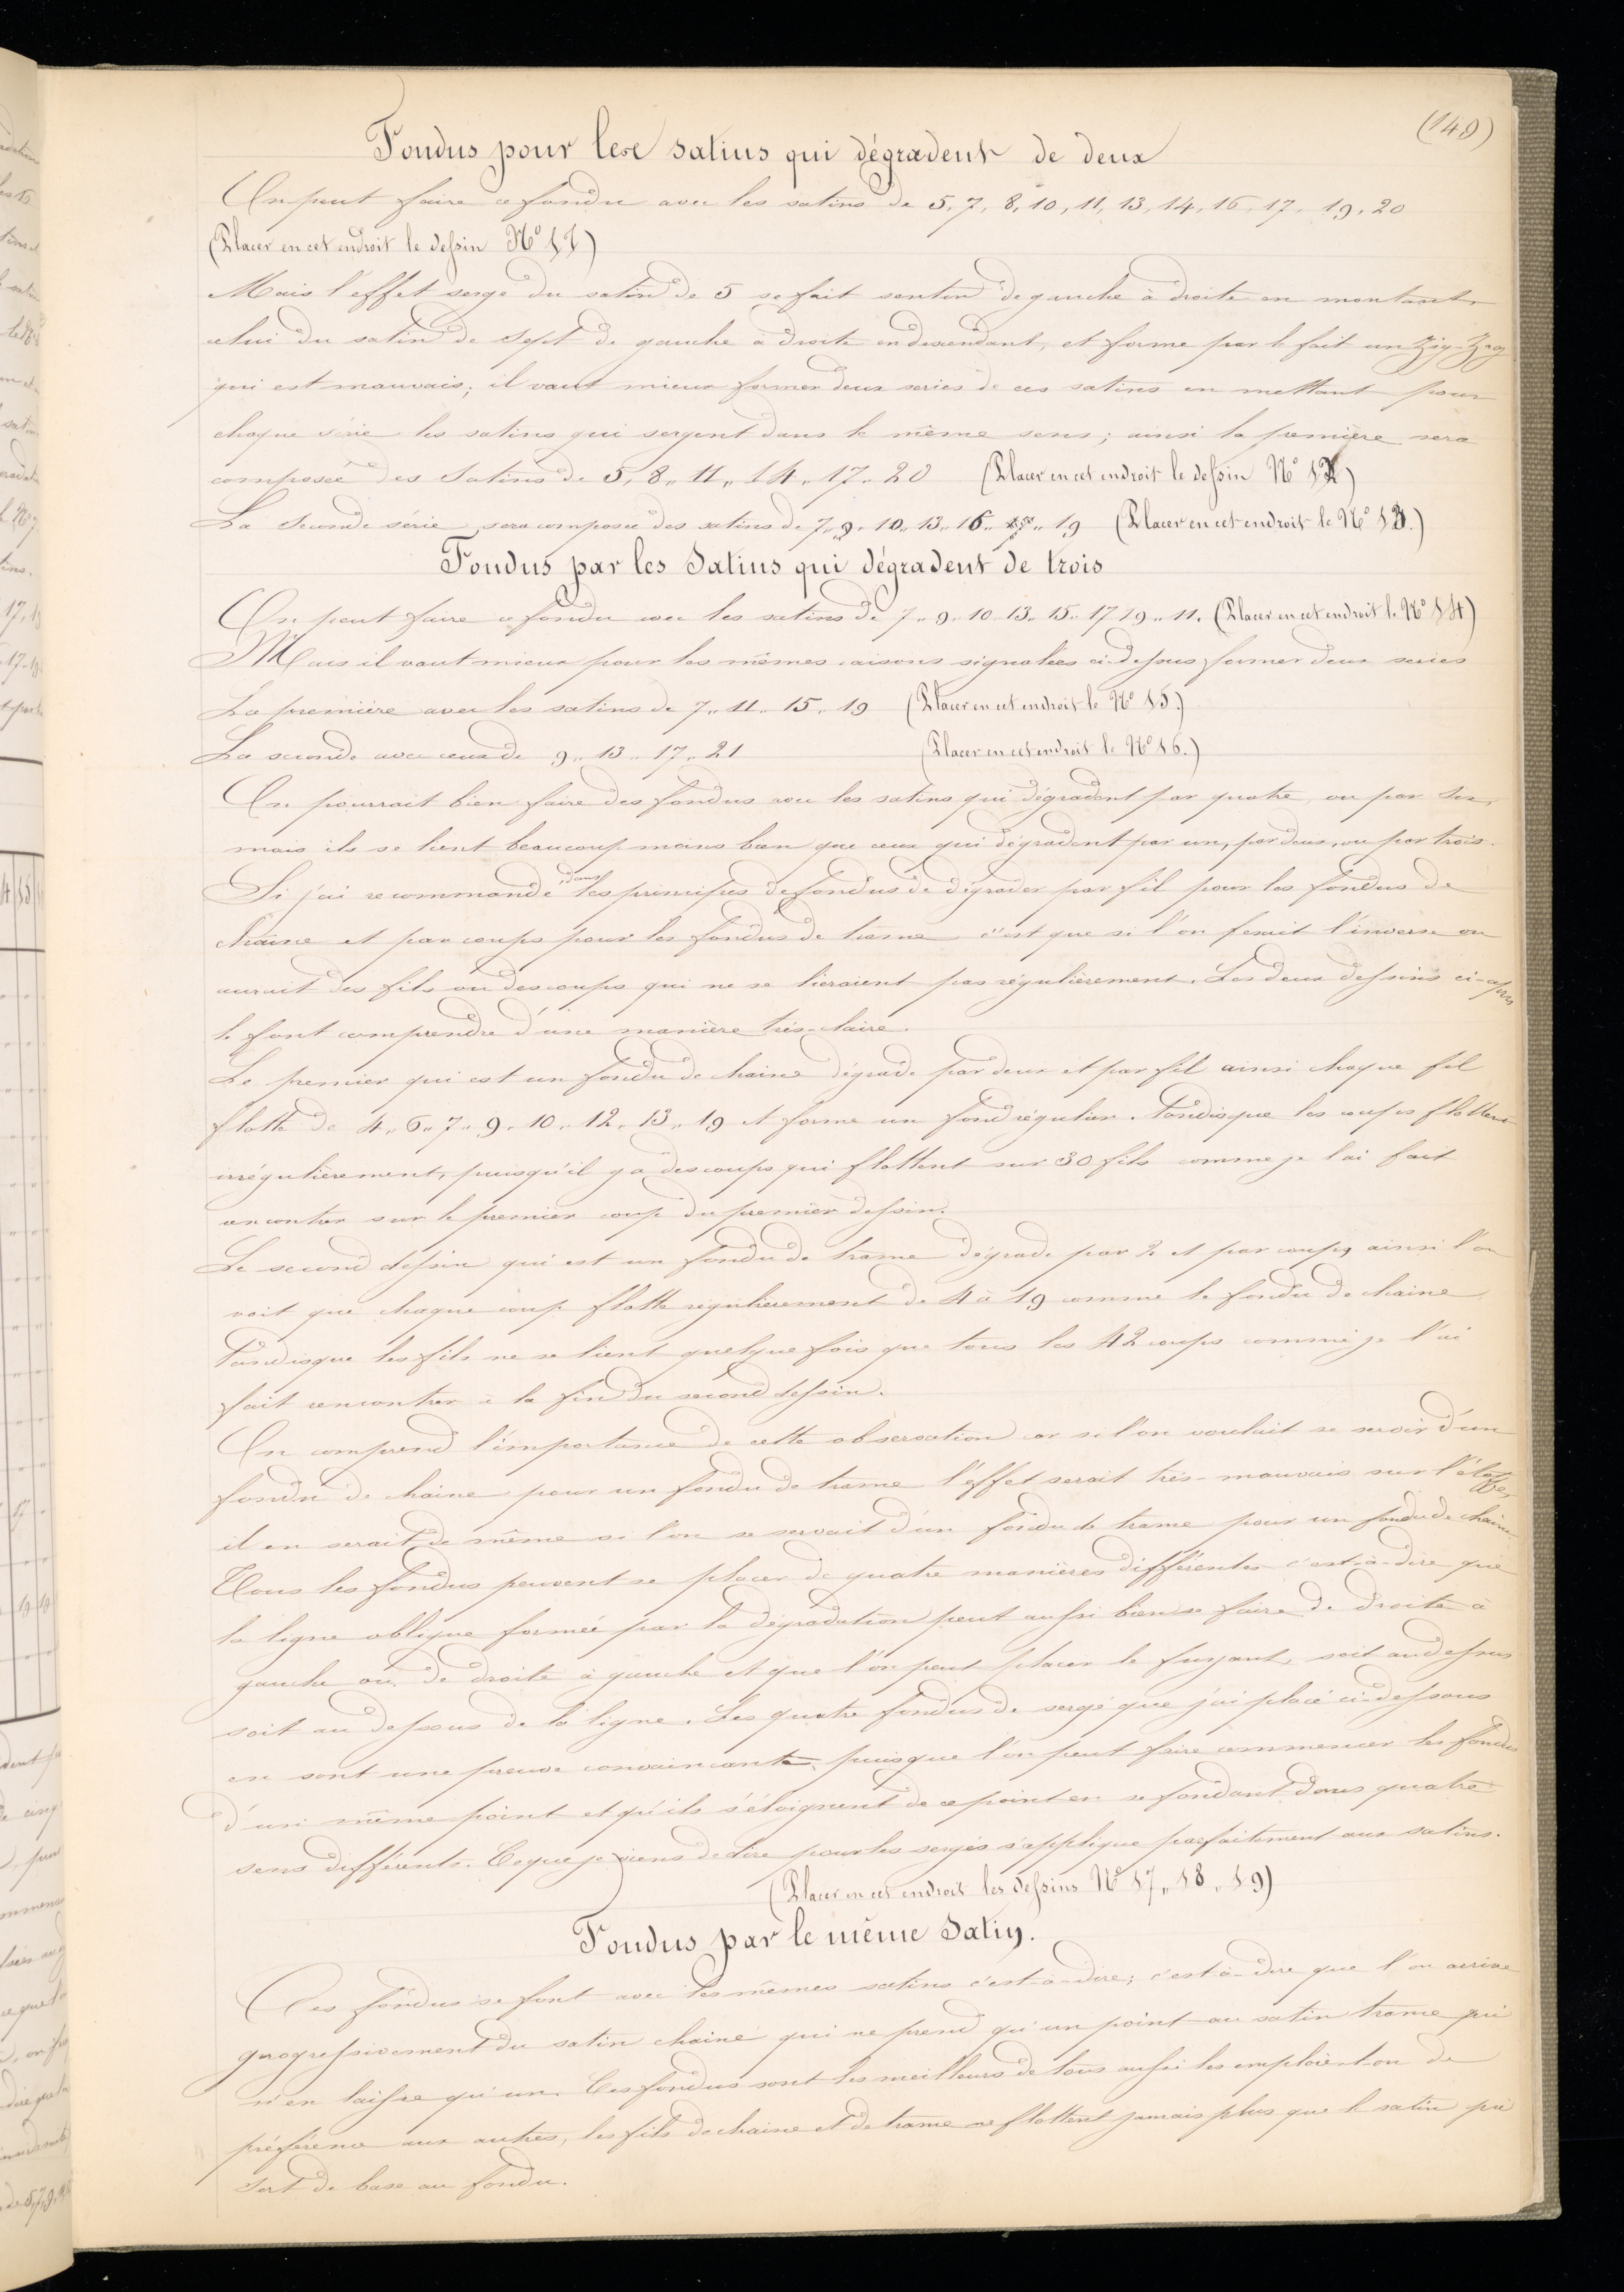 (149)
Fondus pour les satins qui dégradent de deux
On peut faire ce fondu avec les satins de 5, 7, 8, 10, 11, 13, 14, 16, 17, 19, 20
(Placer en cet endroit le dessin Nº 11)
Mais l'effet sergé du satin de 5 se fait sentir de gauche à droite en montant
celui du satin de sept de gauche à droite en descendant, et forme par le fait un zig-zag
qui est mauvais; il vaut mieux former deux séries de ces satins en mettant pour
chaque série les satins qui sergent dans le même sens; ainsi la première sera
composée des Satins de 5, 8, 11, 14, 17, 20 (Placer en cet endroit le dessin Nº 12)
La Seconde série sera composée des satins de 7, 9, 10, 13, 16, 19 (Placer en cet endroit le Nº 13.)
Fondus par les Satins qui dégradent de trois
On peut faire ce fondu avec les satins de 7, 9, 10, 13, 15, 17 19, 11. (Placer en cet endroit le Nº 14)
Mais il vaut mieux pour les mêmes raisons signalées ci-dessus former deux series
La première avec les satins de 7, 11, 15, 19 (Placer en cet endroit le Nº 15.)
La seconde avec ceux de 9, 13, 17, 21 (Placer en cet endroit le Nº 16.)
On pourrait bien faire des fondus avec les satins qui dégradent par quatre, ou par six,
mais ils se lient beaucoup moins bien que ceux qui dégradent par un, par deux, ou par trois.
Si j'ai recommandé dans les principes de fondus de dégrader par fil pour les fondus de
chaîne et par coups pour les fondus de trame c'est que si l'on ferait l'inverse on
aurait des fils ou des coups qui ne se lieraient pas régulièrement. Les deux dessins ci-après
le font comprendre d'une manière très-claire.
Le premier qui est un fondu de chaîne dégrade par deux et par fil ainsi chaque fil
flotte de 4, 6, 7, 9, 10, 12, 13, 19 et forme un fond régulier. Tandisque les coups flottent
irrégulièrement, puisqu'il y a des coups qui flottent sur 30 fils comme je l'ai fait
rencontrer sur le premier coup du premier dessin.
Le second dessin qui est un fondu de trame dégrade par 2 et par coups ainsi l'on
voit que chaque coup flotte régulièrement de 4 à 19 comme le fondu de chaîne
Tandisque les fils ne se lient quelquefois que tous les 42 coups comme je l'ai
fait rencontrer à la fin du second dessin.
On comprend l'importance de cette observation car si l'on voulait se servir d'un
fondu de chaîne pour un fondu de trame l'effet serait très-mauvais sur l'étoffe,
il en serait de même si l'on se servait d'un fondu de trame pour un fondu de chaîne.
Tous les fondus peuvent se placer de quatre manières différentes c'est-à-dire que
la ligne oblique formée par la dégradation peut aussi bien se faire de droite à
gauche ou de droite à gauche et que l'on peut placer le fuyant, soit au dessus
soit au dessous de la ligne. Les quatre fondus de sergé que j'ai placé ci-dessous
en sont une preuve convaincante, puisque l'on peut faire commencer les fondus
d'un même point et qu'ils s'éloignent de ce point en se fondant dans quatre
sens différents. Ce que je viens de dire pour les sergés s'applique parfaitement aux satins.
(Placer en cet endroit les dessins Nº 17, 18, 19)
Fondus par le même Satin.
Ces fondus se font avec les mêmes satins c'est-à-dire; c'est-à-dire que l'on arrive
progressivement du satin chaîne qui ne prend qu'un point au satin trame qui
n'en laisse qu'un. Ces fondus sont les meilleurs de tous aussi les emploie-t-on de
préférence aux autres, les fils de chaîne et de trame ne flottent jamais plus que le satin qui
sert de base au fondu.